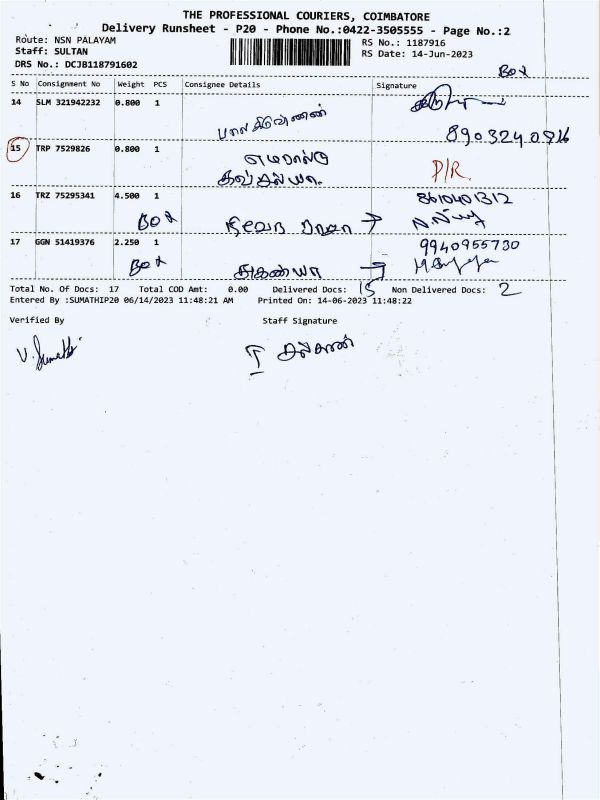 THE PROFESSIONAL COURIERS, COIMBATORE
Delivery Runsheet - P20 - Phone No.:0422-3505555 - Page No.:2
Route: NSN PALAYAM
Staff: SULTAN
DRS No.: DCJB118791602
RS No.: 1187916
RS Date: 14-Jun-2023
BOX
S No Consignment No Weight PCS Consignee Details Signature
14 SLM 321942232 0.800 1
பாலகிருஷ்ணன்
8903240816
15 TRP 7529826 0.800 1
P/R.
16 TRZ 75295341 4.500 1
8610401312
BOX
17 GGN 51419376 2.250 1
9940955730
BOX
சுகன்யா
Total No. Of Docs: 17 Total COD Amt: 0.00 Delivered Docs: 15 Non Delivered Docs: 2
Entered By :SUMATHIP20 06/14/2023 11:48:21 AM Printed On: 14-06-2023 11:48:22
Verified By Staff Signature
V. Sumathi